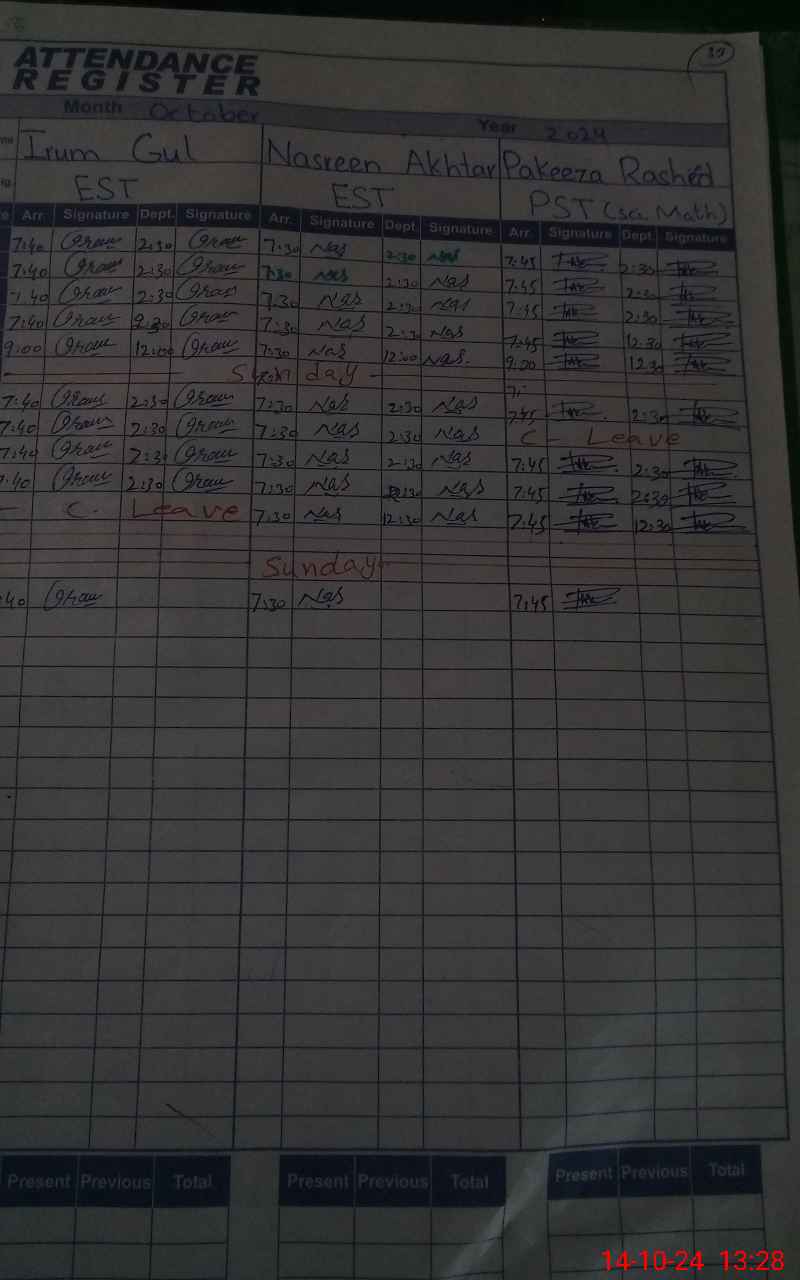 39
ATTENDANCE
REGISTER
Month October Year 2024
Irum Gul Nasreen Akhtar Pakeeza Rashid
EST EST PST (sci. Math)
Arr. Signature Dept. Signature Arr. Signature Dept. Signature Arr. Signature Dept. Signature
7:40 2:30 7:30 Nas 2:30 Nas 7:45 2:30
7:40 2:30 7:30 Nas 2:30 Nas 7:45 2:30
7:40 2:30 7:30 Nas 2:30 Nas 7:45 2:30
7:40 2:30 7:30 Nas 2:30 Nas 7:45 12:30
9:00 12:00 7:30 Nas 12:00 Nas. 9:00 12:30
Sunday
7:40 2:30 7:30 Nas 2:30 Nas 7:45 2:30
7:40 2:30 7:30 Nas 2:30 Nas C - Leave
7:40 2:30 7:30 Nas 2:30 Nas 7:45 2:30
7:40 2:30 7:30 Nas Nas 7:45 2:30
C. Leave 7:30 Nas 12:30 Nas 7:45 12:30
Sunday
:40 7:30 Nas 7:45
Present Previous Total Present Previous Total Present Previous Total
14-10-24 13:28